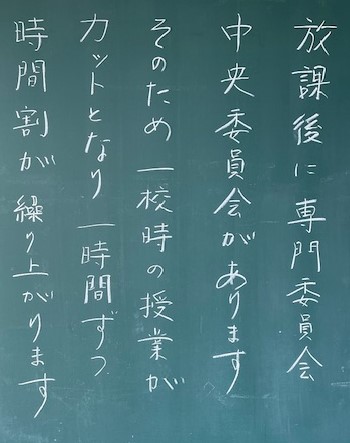 放課後に専門委員会
中央委員会があります
そのため一校時の授業が
カットとなり一時間ずつ
時間割が繰り上がります